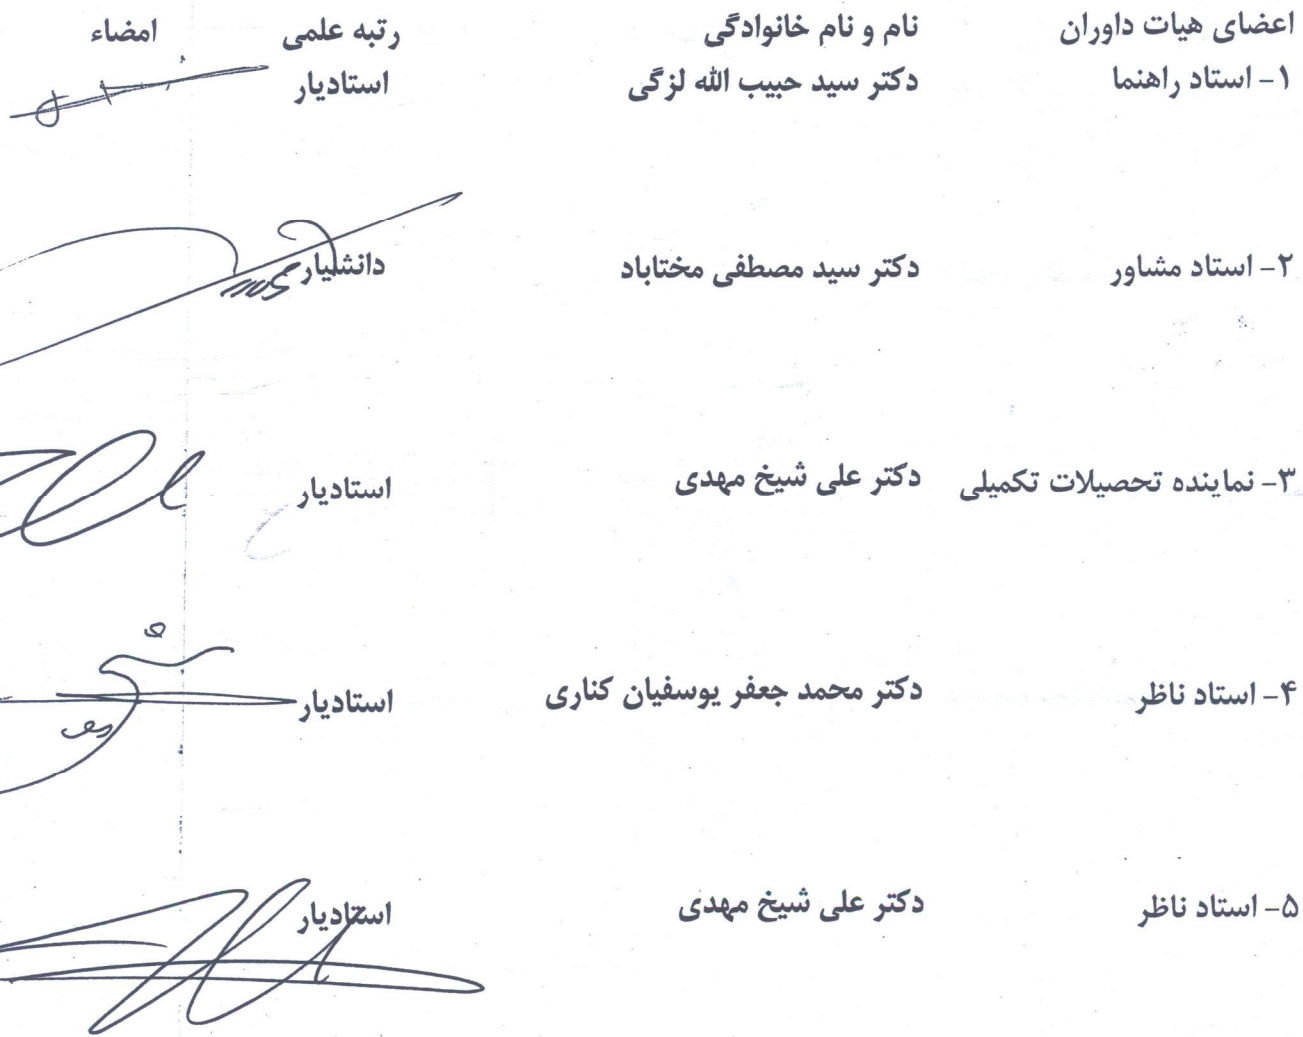 اعضای هیات داوران نام و نام خانوادگی رتبه علمی امضاء
۱- استاد راهنما دکتر سید حبیب الله لزگی استادیار
۲- استاد مشاور دکتر سید مصطفی مختاباد دانشیار
۳- نماینده تحصیلات تکمیلی دکتر علی شیخ مهدی استادیار
۴- استاد ناظر دکتر محمد جعفر یوسفیان کناری استادیار
۵- استاد ناظر دکتر علی شیخ مهدی استادیار